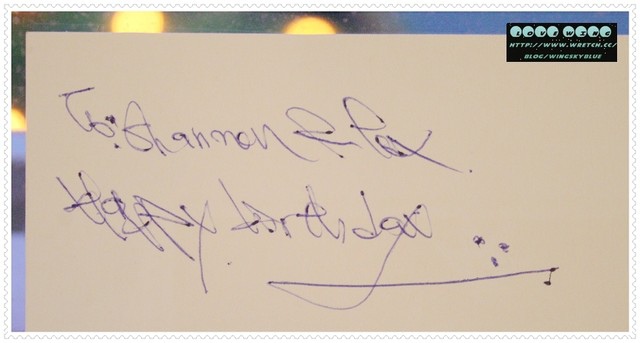 LOVE WING
HTTP://WWW.WRETCH.CC/
BLOG/WINGSKYBLUE
To: Shannon & Fox.
Happy birthday